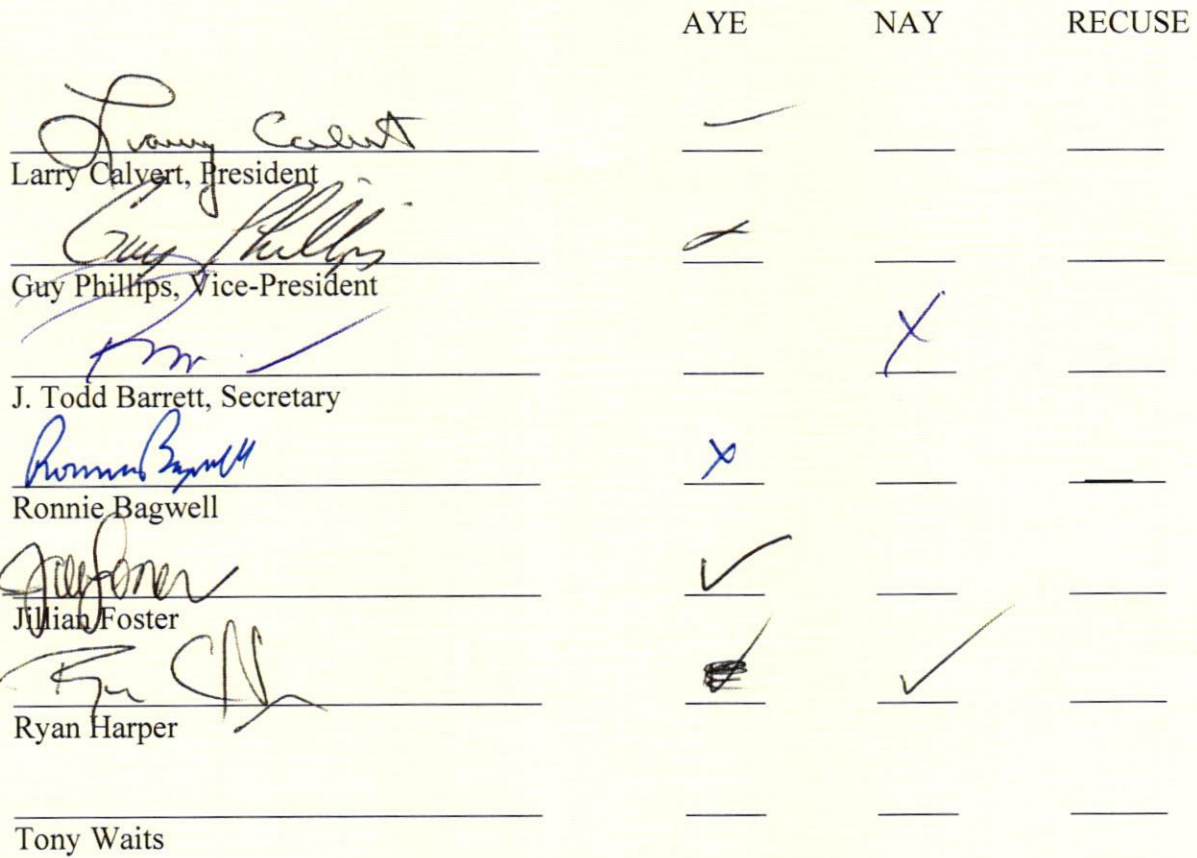 AYE NAY RECUSE
Larry Calvert
Larry Calvert, President
Guy Phillips
Guy Phillips, Vice-President
J. Todd Barrett, Secretary
Ronnie Bagwell
Ronnie Bagwell
Jillian Foster
Ryan Harper
Tony Waits